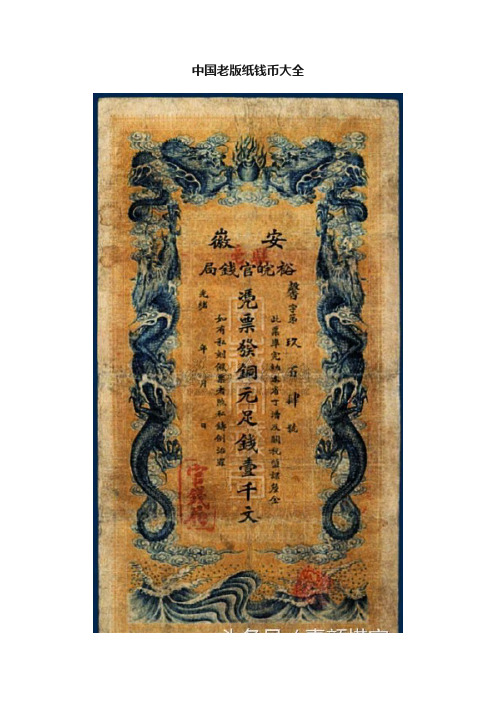 中国老版纸钱币大全
安徽
裕皖官錢局
馨字第玖百肆號
此票準完納本省丁漕及關稅鹽課釐金
憑票發銅元足錢壹千文
如有私刻假票者照私鑄例治罪
光緒 年 月 日
官錢局